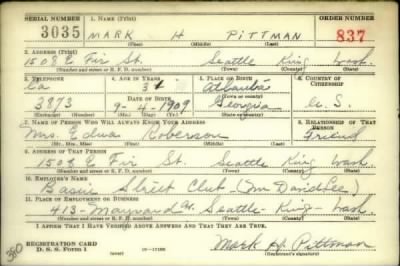 SERIAL NUMBER 1. NAME (Print) ORDER NUMBER
3035 MARK H PITTMAN 837
(First) (Middle) (Last)
2. ADDRESS (Print)
1508 E Fir St. Seattle King Wash.
(Number and street or R. F. D. number) (Town) (County) (State)
3. TELEPHONE 4. AGE IN YEARS 5. PLACE OF BIRTH 6. COUNTRY OF CITIZENSHIP
Ca 31 Atlanta
3873 DATE OF BIRTH (Town or county)
9-4-1909 Georgia U.S.
(Mo.) (Day) (Yr.) (State or country)
7. NAME OF PERSON WHO WILL ALWAYS KNOW YOUR ADDRESS 8. RELATIONSHIP OF THAT PERSON
Mrs. Edna Roberson Friend
(Mr., Mrs., Miss) (First) (Middle) (Last)
9. ADDRESS OF THAT PERSON
1508 E Fir St. Seattle King Wash.
(Number and street or R. F. D. number) (Town) (County) (State)
10. EMPLOYER'S NAME
Basin Street Club - (
11. PLACE OF EMPLOYMENT OR BUSINESS
413 - Maynard Av. Seattle - King - Wash.
(Number and street or R. F. D. number) (Town) (County) (State)
I AFFIRM THAT I HAVE VERIFIED ABOVE ANSWERS AND THAT THEY ARE TRUE.
REGISTRATION CARD
D. S. S. Form 1 (over) Mark H. Pittman
(Registrant's signature)
380